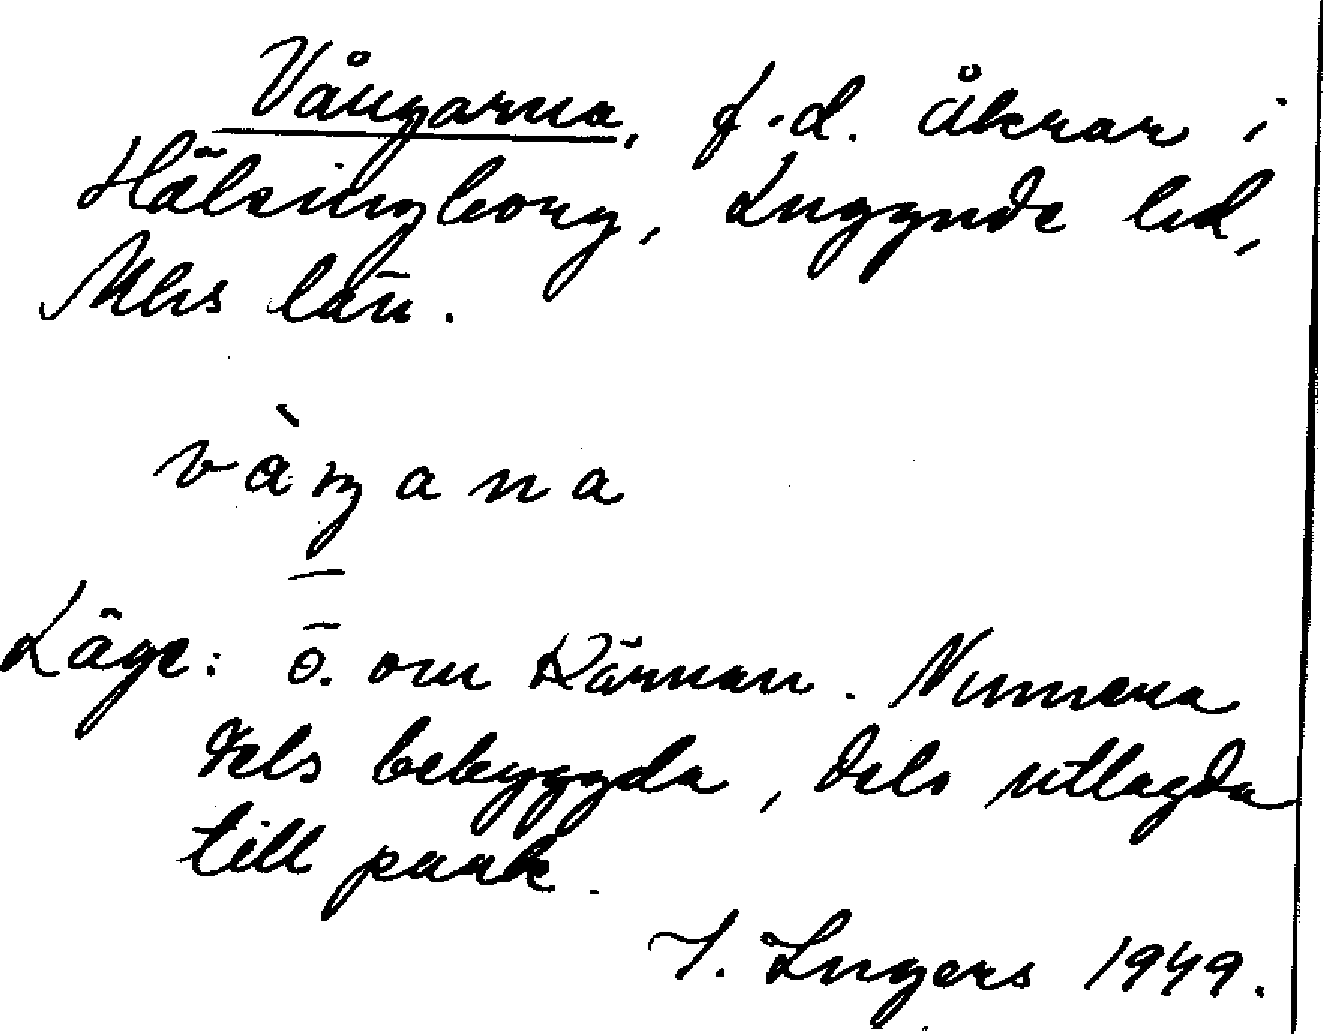 Vångarna, f.d. åkrar i
Hälsingborg, Luggude hd,
Mhs län.
vàŋana
Läge: ö. om Kärnan. Numera
dels bebyggda, dels utlagda
till park.
I. Ingers 1949.